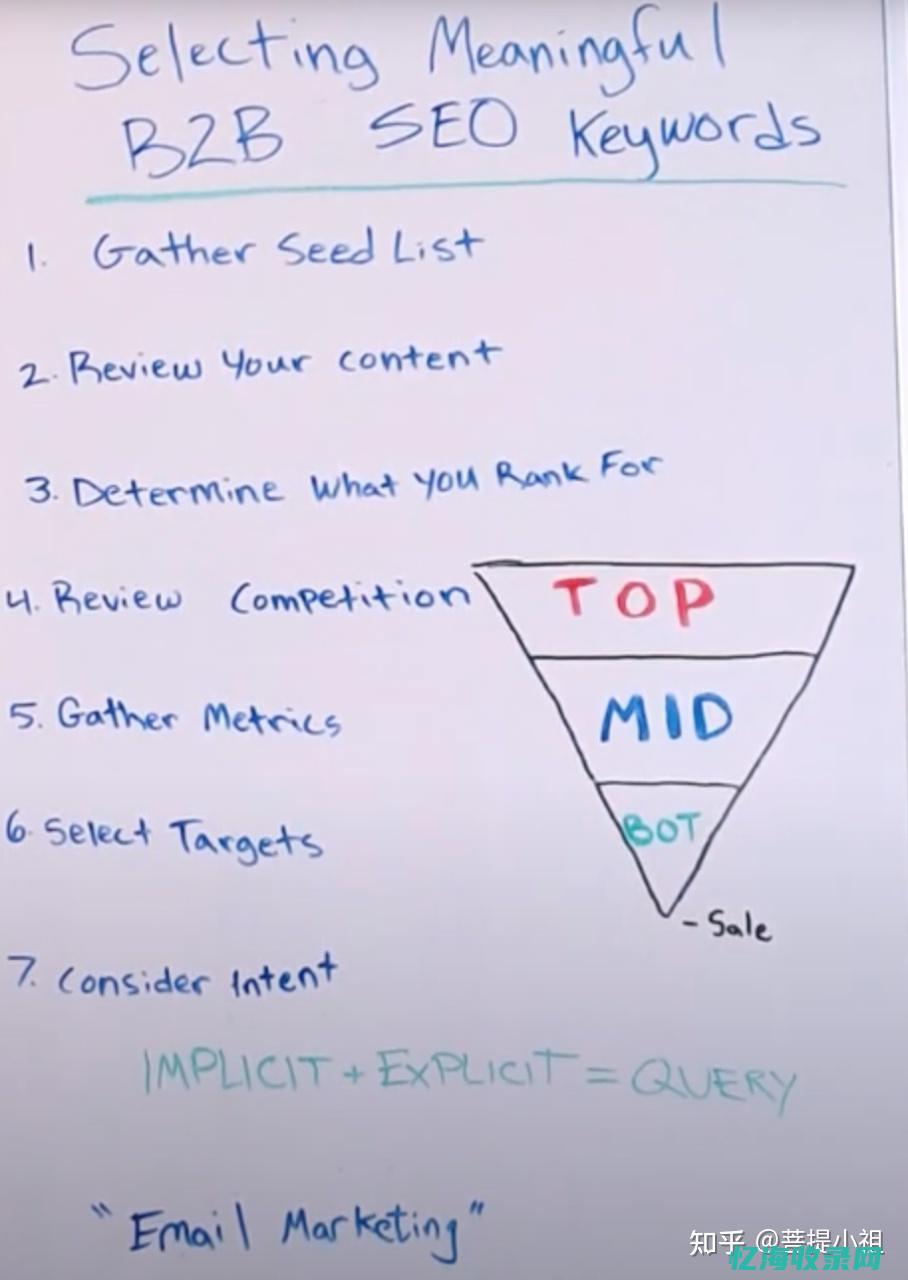 Selecting Meaningful
B2B SEO Keywords
1. Gather Seed List
2. Review Your Content
3. Determine What You Rank For
4. Review Competition
TOP
5. Gather Metrics
MID
6. Select Targets
BOT
- Sale
7. Consider Intent
IMPLICIT + EXPLICIT = QUERY
"Email Marketing"
知乎 @菩提小祖
忆海收录网